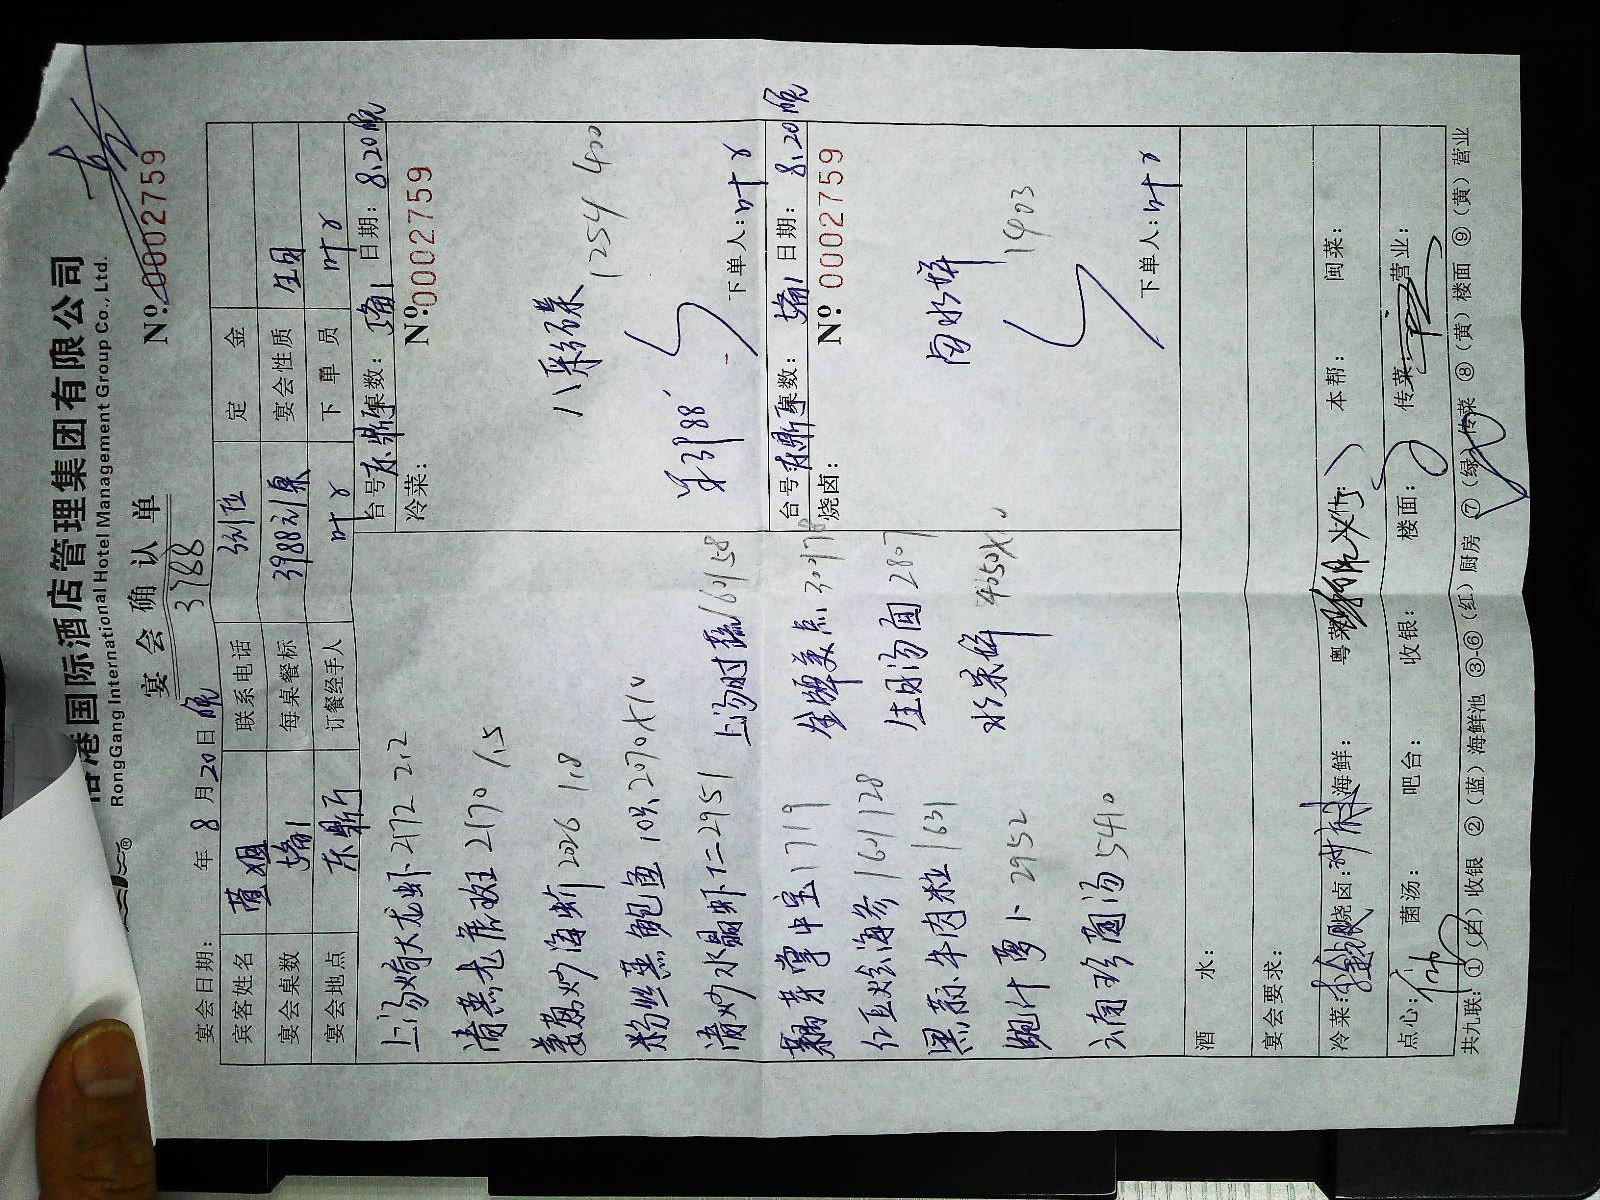 港国际酒店管理集团有限公司
RongGang International Hotel Management Group Co., Ltd.
宴会确认单
3788
No.0002759
宴会日期： 年 8 月 20 日 晚
宾客姓名 联系电话 定金
宴会桌数 1席 每桌餐标 3988 宴会性质 生日
宴会地点 东鼎厅 订餐经手人 叶 下单员 叶
上汤焗大龙虾 2172 2.2
清蒸老虎斑 2170 1.5
姜葱炒海蟹 2026 1.8
粉丝蒸鲍鱼 10只 2070×10
清炒水晶虾仁 2951
掌中宝 1719
红豆炖海参 1601 128
黑蒜牛肉粒 1631
鲍汁萝卜 2952
云南珍菌汤 5410
上汤时蔬 1601 58
生日汤面 2807
水果拼 4050×10
台号 东鼎厅 桌数： 1席 日期： 8.20晚
冷菜：
No.0002759
八彩碟 1254 400
下单人：叶
台号 东鼎厅 桌数： 1席 日期： 8.20晚
烧卤：
No.0002759
卤水拼 1903
下单人：叶
酒 水：
宴会要求：
冷菜： 烧卤： 海鲜： 粤菜： 本帮： 闽菜：
点心： 菌汤： 吧台： 收银： 楼面： 传菜： 营业：
共九联：①（白）收银 ②（蓝）海鲜池 ③-⑥（红）厨房 ⑦（绿）传菜 ⑧（黄）楼面 ⑨（黄）营业